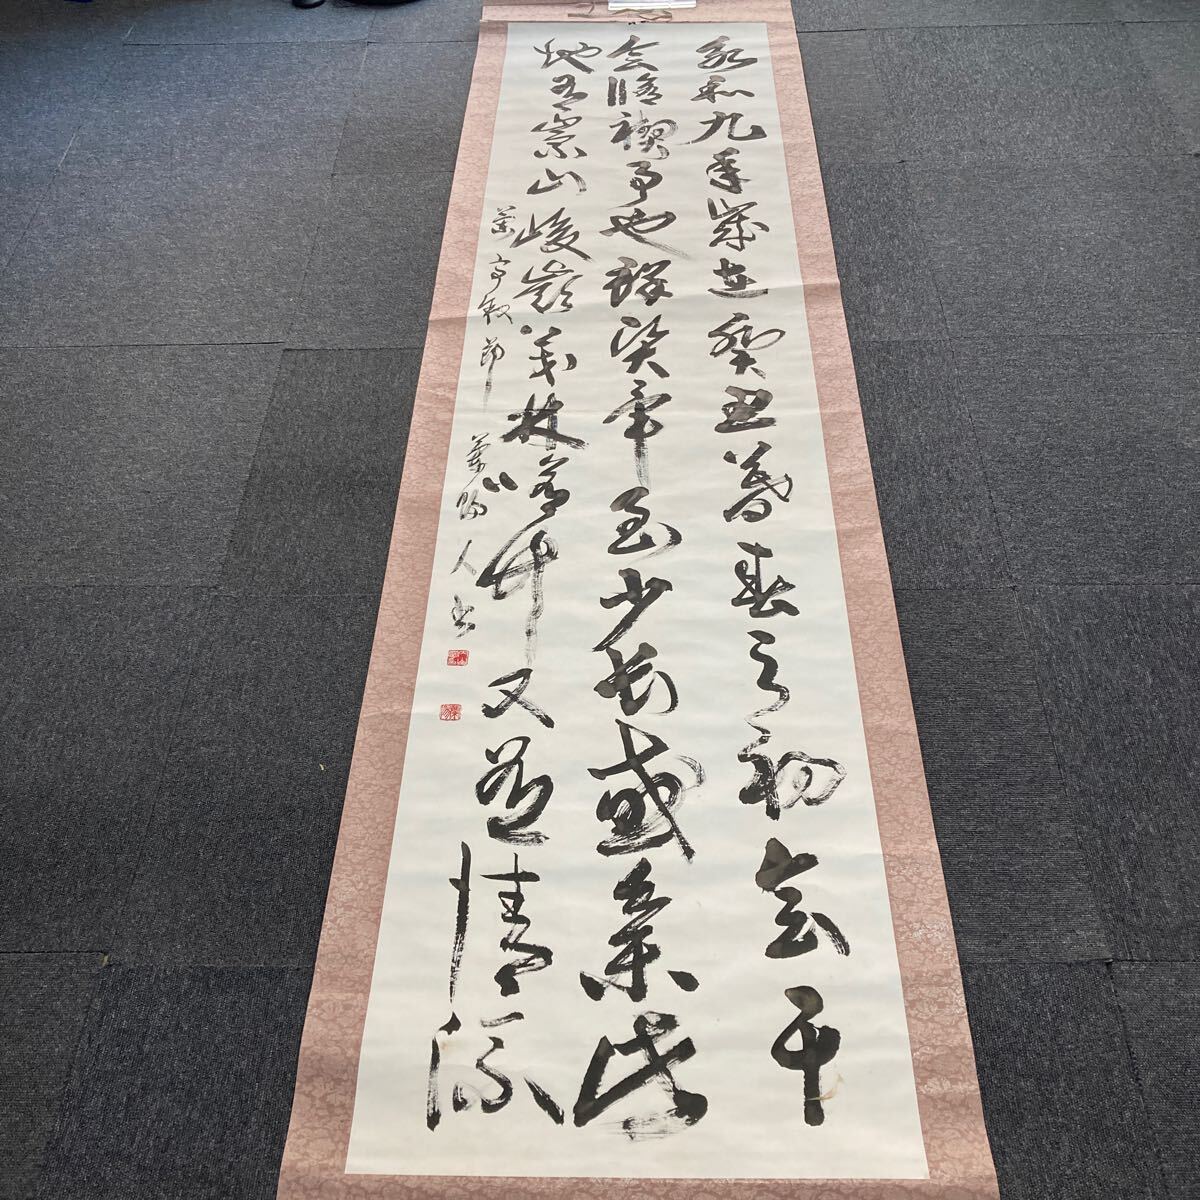 永和九年歲在癸丑暮春之初会于
会脩禊事也群賢畢至少長咸集此
地有崇山峻嶺茂林脩竹又有清流
蘭亭叙節 蘭 人書